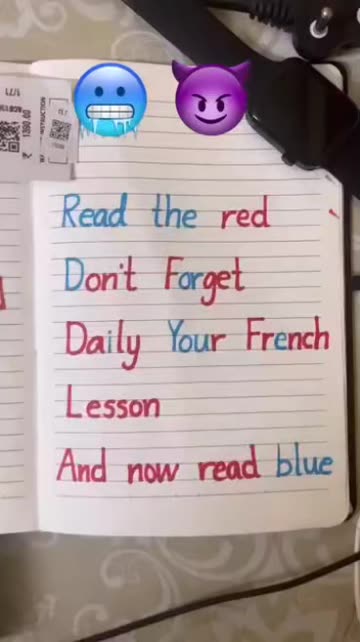 Read the red
Don't Forget
Daily Your French
Lesson
And now read blue